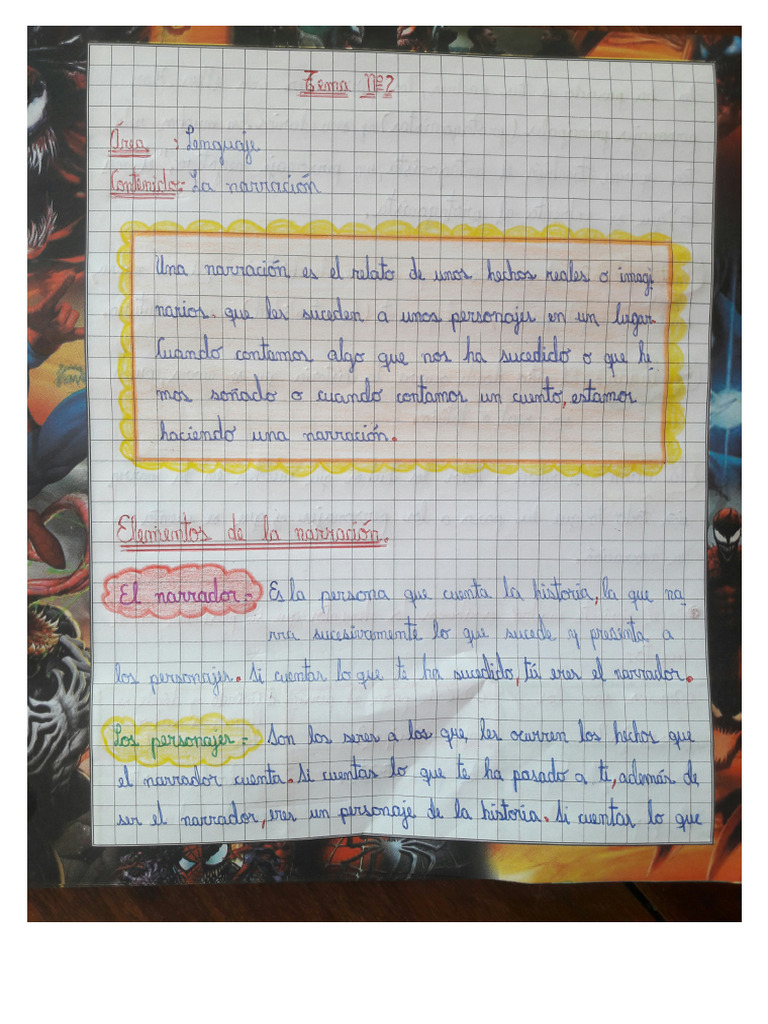 Tema Nº2
Área : Lenguaje
Contenido: La narración
Una narración es el relato de unos hechos reales o imagi
narios. que les suceden a unos personajes en un lugar.
Cuando contamos algo que nos ha sucedido o que he
mos soñado o cuando contamos un cuento, estamos
haciendo una narración.
Elementos de la narración.
El narrador.- Es la persona que cuenta la historia, la que na
rra sucesivamente lo que sucede y presenta a
los personajes. Si cuentas lo que te ha sucedido, tú eres el narrador.
Los personajes:- Son los seres a los que, les ocurren los hechos que
el narrador cuenta. Si cuentas lo que te ha pasado a ti, además de
ser el narrador, eres un personaje de la historia. Si cuentas lo que